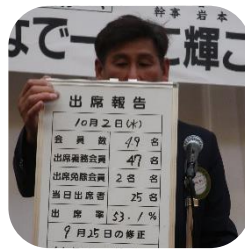 幹事 岩本
なで一
に輝こ
出席報告
10月2日(水)
会員数 49名
出席義務会員 47名
出席免除会員 2名 名
当日出席者 25名
出席率 53.1%
9月25日の修正